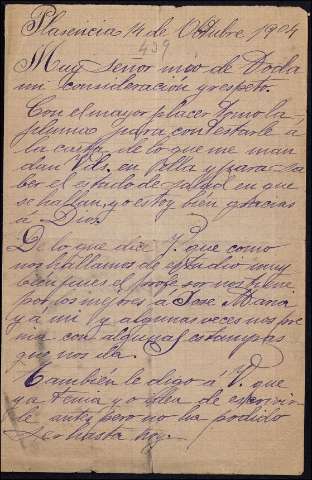 Plasencia 14 de Octubre 1904
439
Muy Señor mio de Toda
mi consideracion y respeto.
Con el mayor placer Tomo la
pluma para contestarle á
la carta de lo que me man
dan Vds. en Ella y para sa
ber el estado de salud en que
se hallan, yo estoy bien gracias
á Dios.
De lo que dice V. que como
nos hallamos de estudio muy
bien pues el profesor nos tiene
por los mejores á Jose Maria
y á mi y algunas veces nos pre
mia con algunas estampas
que nos da.
También le digo á V. que
ya tenia yo idea de escrivir
le antes pero no ha podido
ser hasta hoy.